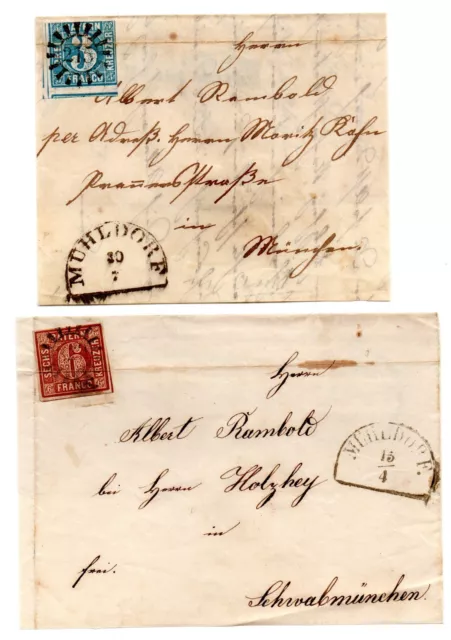 3
KREUZER
FRANCO
Herrn
Albert Rambold
per Adreß. Herrn Moritz Kohn
Prannersstraße
in
München
MÜHLDORF
30
7
SECHS
6
KREUZER
FRANCO
Herrn
Albert Rambold
bei Herrn Holzhey
in
frei.
Schwabmünchen.
MÜHLDORF.
15
4